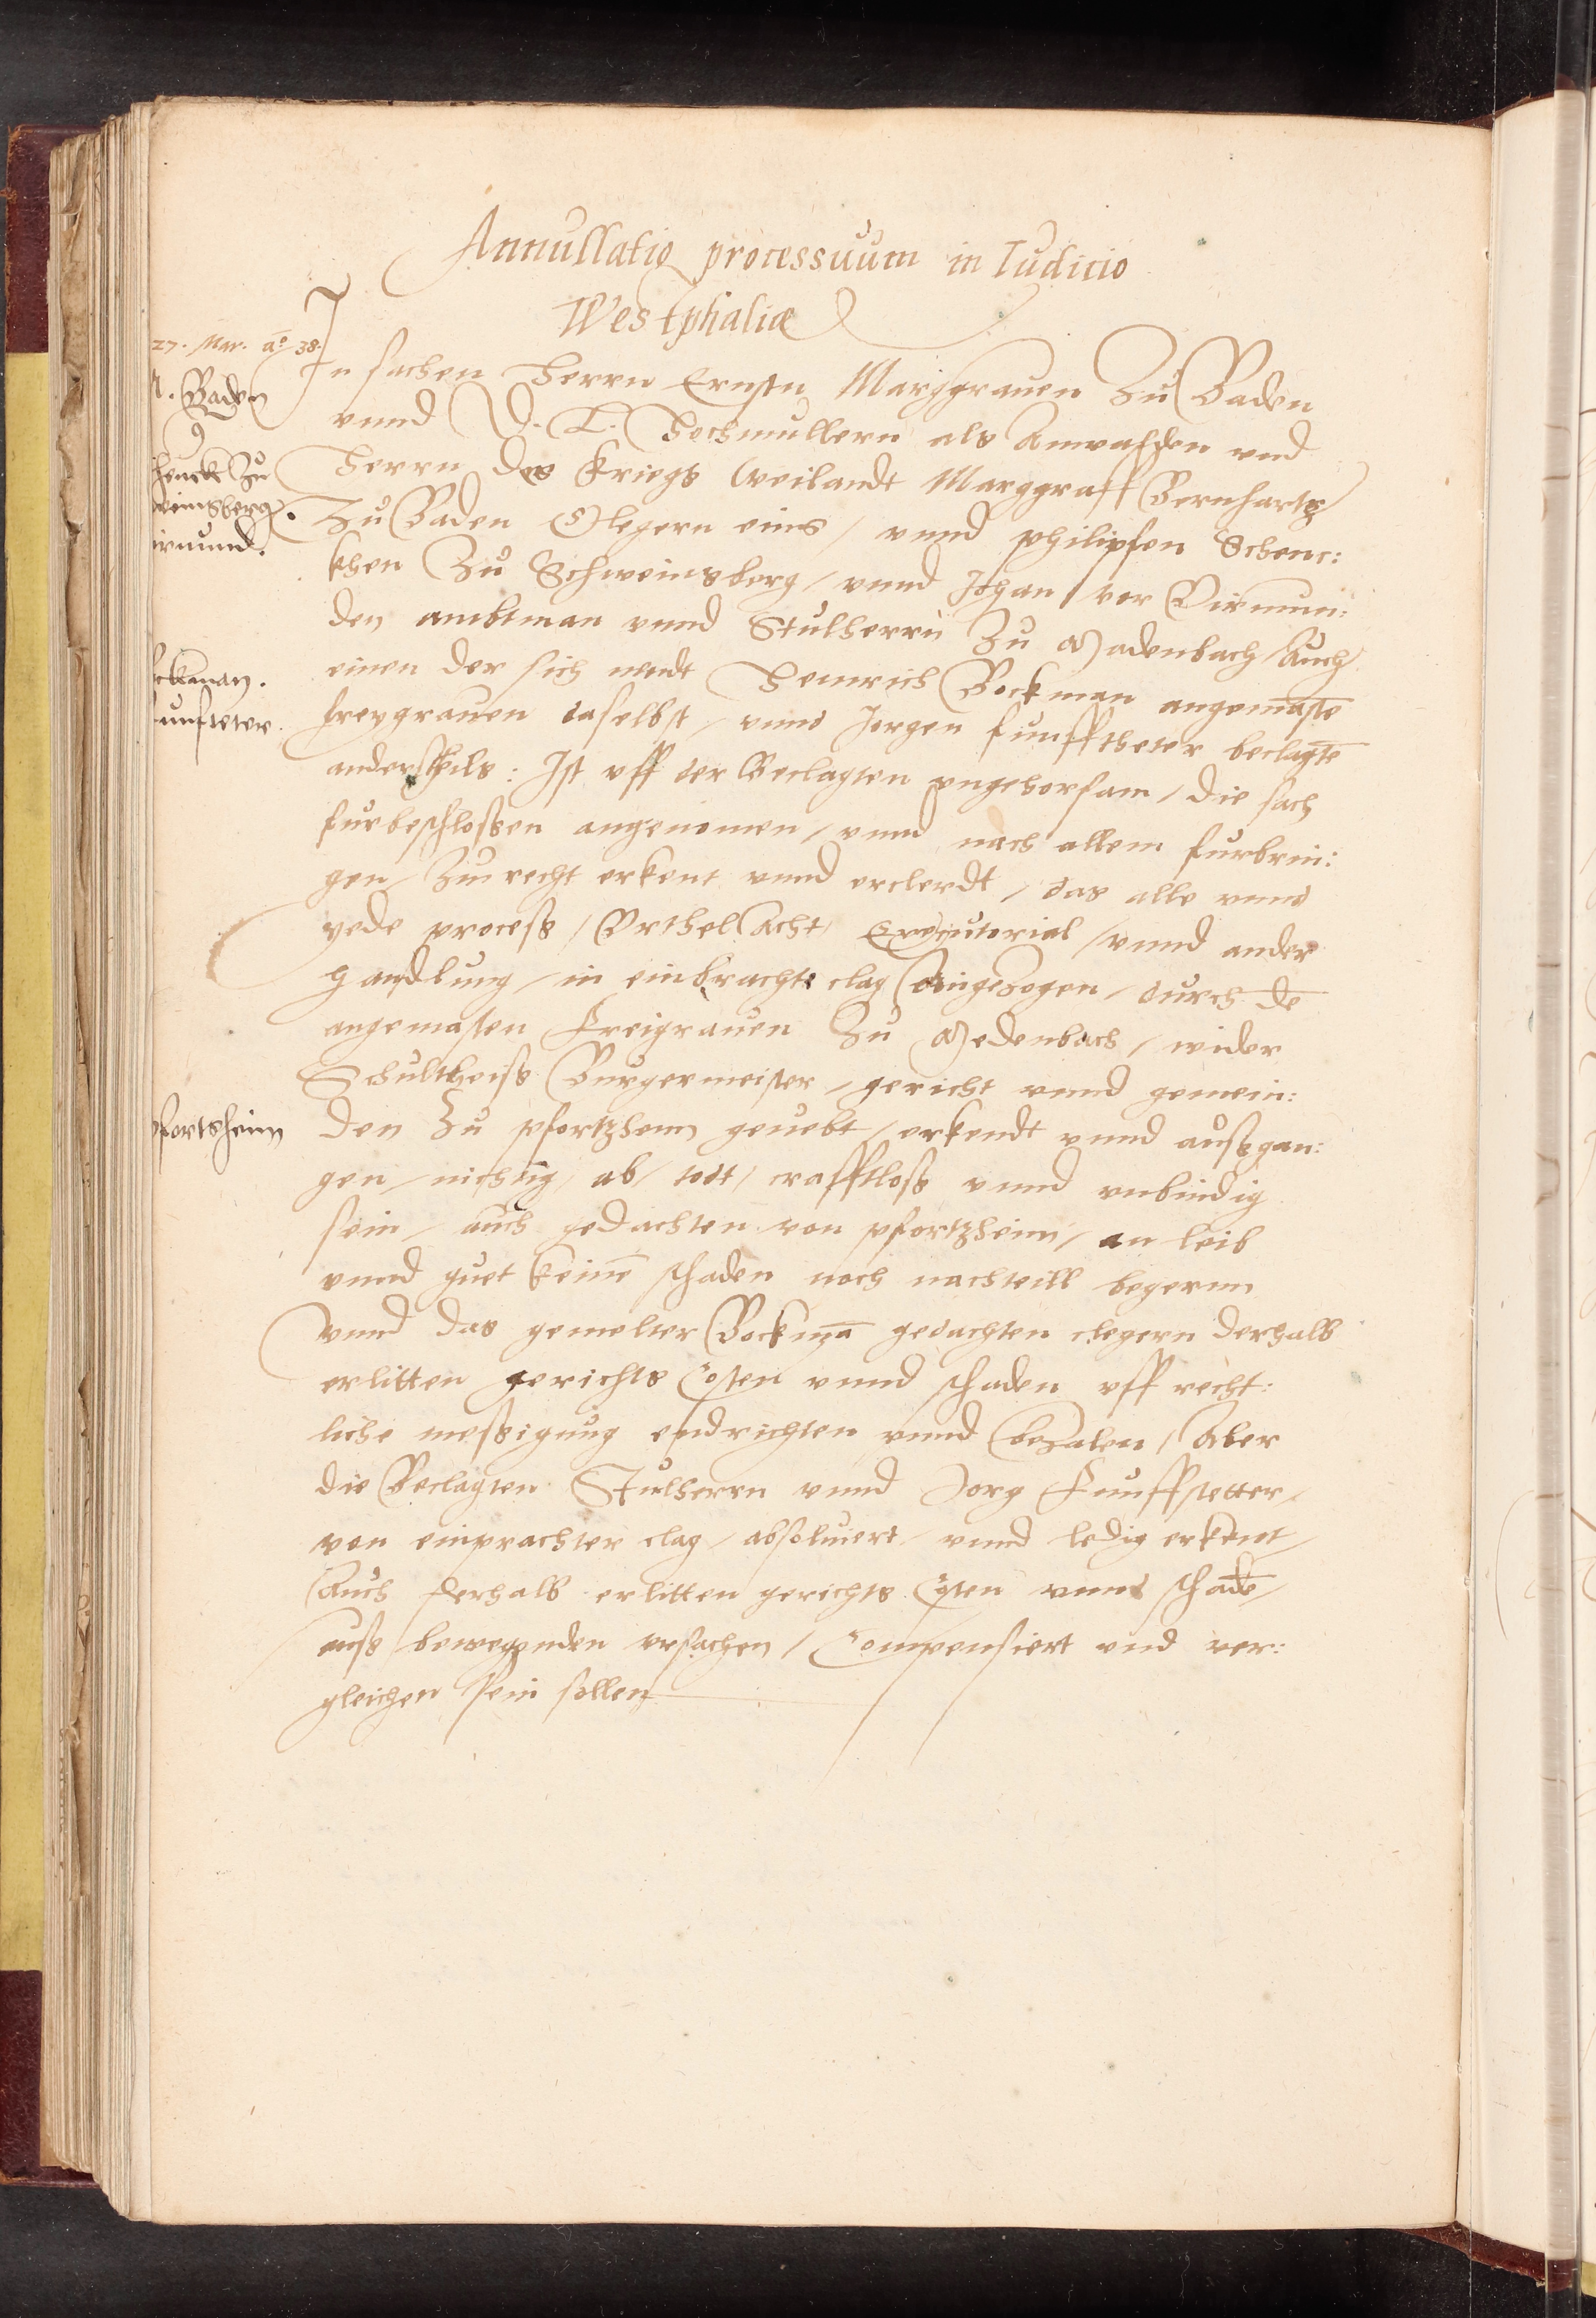 Annullatio processuum in Iudicio
Westphaliæ
27. Mar. aō 38.
M. Baden
henckh zu
weinsberg.
irmund.
ckman.
unfteter.
pfortzheim
In sachen Herrn Ernstn Marggrauen Zu Baden
vnnd D. L. Hochmullern als Anwalden vnd
Herrn des Kriegs weilandt Marggraff Bernhartz
Zu Baden Clegern eins / vnnd philipsen Schenc:
khen Zu Schweinsberg / vnnd Johan vor Virmun:
den ambtman vnnd Stulherrn Zu Madenbach / Auch
einen der sich nendt Heinrich Bockman angemastē
freygrauen daselbst / vnnd Jorgen funfftheter beclagtē
anderstheils: Ist vff der Beclagten vngehorsam / die sach
fur beschloßen angenomen / vnnd nach allem furbrin:
gen / Zu recht erkent vnnd erclerdt / das alle vnnd
yede proceß / Vrthel Acht / Executorial / vnnd ander
handlung / in einbrachte clag Angezogen / durch dē
angemasten Freigrauen Zu Medenbach / wider
Schultheiß Burgermeister / gericht vnnd gemein:
den Zu pfortzheim geuebt / erkendt vnnd außgan:
gen / nichtig / ab / todt / crafftloß vnnd vnbindig
sein / auch gedachten von pfortzheim / an leib
vnnd guet keinē schaden noch nachteill begernn
vnnd das gemelter Bockmā gedachten clegern derhalb
erlitten gerichts Costen vnnd schaden vff recht:
liche meßigung endrichten vnnd bezalen / Aber
die Beclagten Stulherrn vnnd Jorg Funffstetter /
von einprachter clag / absoluiert / vnnd ledig erkent /
Auch derhalb erlitten gerichts Costen vnnd schadē /
auß bewegenden vrsachen / Compensiert vnd ver:
gleichen sein sollen